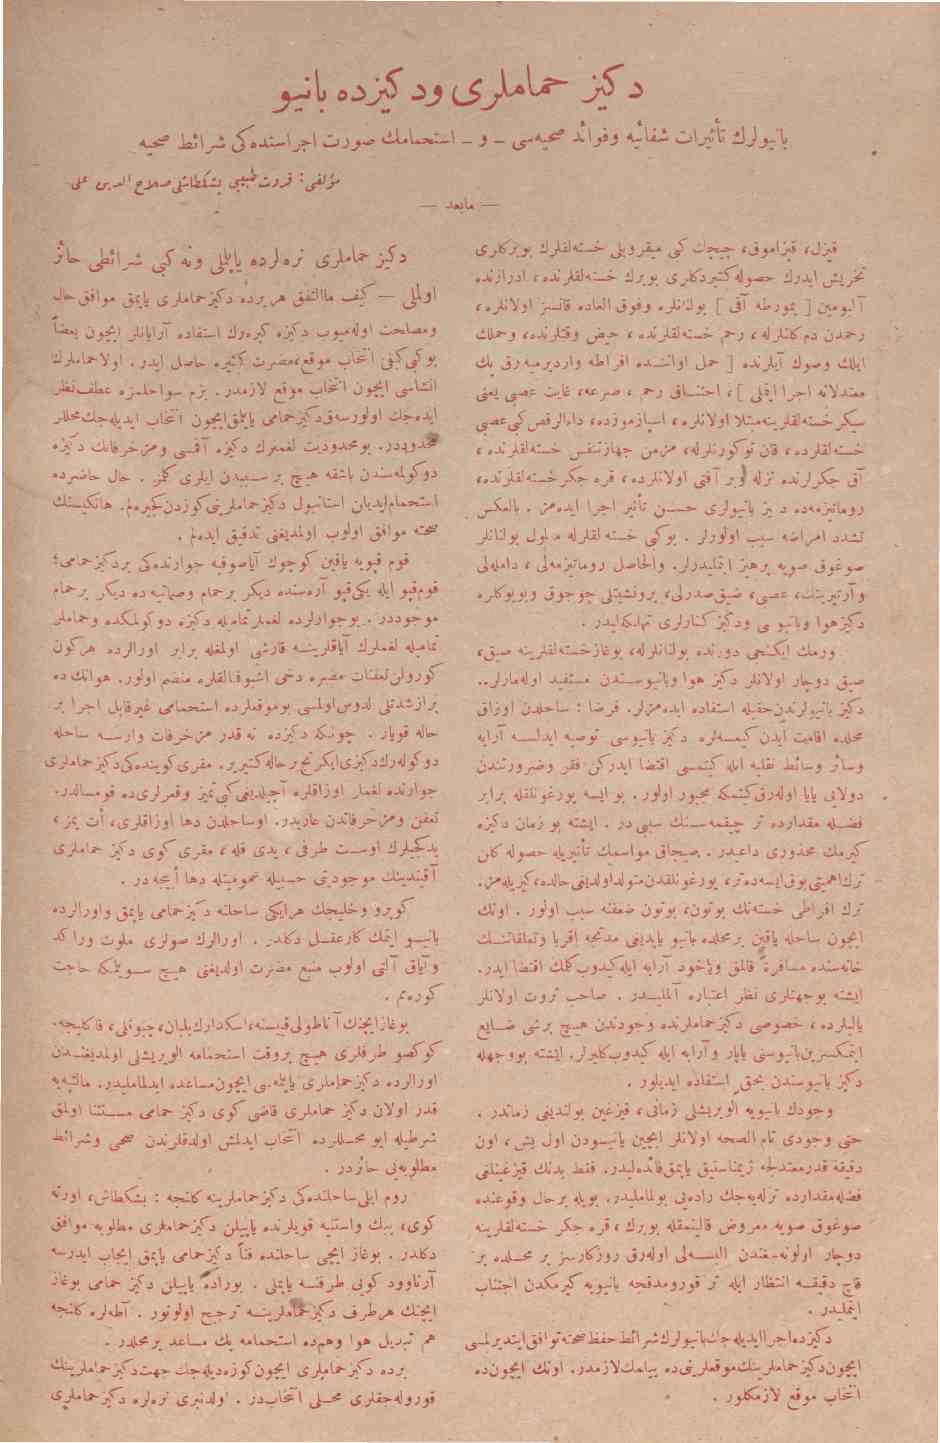 دكيز حماملری ودكيزده بانيو
بانيولرك تأثيرات شفائيه وفوائد صحيه‌سی ـ و ـ استحمامك صورت اجراسنده‌كی شرائط صحيه
مؤلفی : قدرت طبيبی بشكطاشلی صلاح الدين علی
— مابعد —
قيزل، قيزاموق، چيچك كبی ميقروبلی خسته‌لقلرك بوبركلری
تخريش ايدرك حصوله كتيردكلری بوبرك خسته‌لقلرنده ، ادرارنده
آلبومين [ يمورطه آقی ] بولنانلره وفوق العاده قانسز اولانلره ،
رحمدن دم كلنلرله ، رحم خسته‌لقلرنده ، حيض وقتلرنده، وحملك
ايلك وصوك آيلرنده [ حمل اولننده افراطه واردیرمیه‌رق بك
معتدلانه اجرا ايتملی ] ، اختناق رحم ، صرعه، غايت عصبی يعنی
سيكر خسته‌لقلرينه مبتلا اولانلره ، اسپازموزده، داءالرقص كبی عصبی
خسته‌لقلرده ، قان توكورنلرله، مزمن جهازتنفس خسته‌لقلرنده ،
آق جكرلرنده نزله وبر آفتی اولانلرده ، قره جكر خسته‌لقلرنده،
روماتيزمه‌ده دكيز بانيولری حسن تأثير اجرا ايده‌مز . بالعكس
تشدد امراضه سبب اولورلر . بو كبی خسته لقلرله معلول بولنانلر
صوغوق صويه پرهيز ايتمليدرلر. والحاصل روماتيزمه‌لی ، دامله‌لی
وآرتريتيك، عصبی، ضيق صدرلی، برونشيتلی چوجوق وبويوكلره
دكيز هوا وبانيوسی ودكيز كنارلری تهلكه‌ليدر .
ورمك ايكنجی دورنده بولنانلرله، بوغاز خسته‌لقلرينه صيق،
صيق دوچار اولانلر دكيز هوا وبانيوسندن مستفيد اوله‌مازلر..
دكيز بانيولرندن حقيله استفاده ايده‌مزلر. فرضا : ساحلدن اوزاق
محلده اقامت ايدن كيمسه‌لره دكيز بانيوسی توصيه ايدلسه آرابه
وسائر وسائط نقليه ايله كيتمسی اقتضا ايدركن فقر وضرورتندن
دولايی يايا اوله‌رق كيتمكه مجبور اولور . بو ايسه يورغونلقله برابر
فضله مقدارده تر چيقمه‌سنك سببی در . ايشته بو زمان دكيزه
كيرمك محذوری داعيدر . صيجاق مواسمك تأثيريله حصوله كلن
ترك اهميتی يوق ايسه‌ده تر، يورغونلقدن متولد اولديغی حالده، كيريله‌مز.
ترك افراطی خسته‌نك بوتون، بوتون ضعفنه سبب اولور . اونك
ايچون ساحله ياقين بر محلده بانيو ياپديغی مدتجه اقربا وتعلقاتنك
خانه‌سنده مسافرة قالمق وياخود آرابه ايله كيدوب كلمك اقتضا ايدر.
ايشته بو جهتلری نظر اعتباره آلمليدر . صاحب ثروت اولانلر
ياليلرده ، خصوصی دكيز حماملرنده وجودندن هيچ برشی ضايع
ايتمكسزين بانيوسنی ياپار وآرابه ايله كيدوب كلیرلر. ايشته بو وجهله
دكيز بانيوسندن بحق استفاده ايديلور .
وجودك بانيويه الويريشلی زمانی ، قيزغين بولنديغی زماندر .
حتی وجودی تام الصحه اولانلر ايچين بانيودن اول يش، اون
دقيقه قدر معتدلجه ژيمناستيق ياپمق فائده‌ليدر. فقط بدنك قيزغينلغی
فضله مقدارده ترله‌يه‌جك راده‌يی بولمامليدر. بويله بر حال وقوعنده
صوغوق صويه معروض قالينمقله بوبرك ، قره جكر خسته‌لقلرينه
دوچار اولونه‌جغندن البسه‌لی اوله‌رق روزكارسز بر محلده بر
قاچ دقيقه انتظار ايله تر قورومدقجه بانيويه كيرمكدن اجتناب
ايتمليدر .
دكيزده اجرا ايديله‌جك بانيولرك شرائط حفظ صحته توافق ايتديرلمسی
ايچون دكيز حماملرينك موقعلرينی ده بيلمك لازمدر. اونك ايچون ده
انتخاب موقع لازمكلور .
دكيز حماملری نره‌لرده ياپيللی ونه كبی شرائطی حائز
اولملی — كيف ماالتفق هر يرده دكيز حماملری ياپمق موافق حال
ومصلحت اوله‌ميوب دكيزه كيره‌رك استفاده آرايانلر ايچون بعضاً
بو كبی كيفی انتخاب موقع، مضرت كثيره حاصل ايدر . اولا حماملرك
انشاسی ايچون انتخاب موقع لازمدر . بزم سواحلمزه عطف نظر
ايده‌جك اولورسه‌ق دكيز حمامی ياپمق ايچون انتخاب ايديله‌جك محللر
محدوددر. بو محدوديت لغملرك دكيزه آقمسی ومزخرفاتك دكيزه
دوكولمه‌سندن باشقه هيچ بر سببدن ايلری كلمز . حال حاضرده
استحمام ايديلن استانبول دكيز حماملرينی كوزدن كچيره‌لم. هانكيسنك
صحته موافق اولوب اولمديغنی تدقيق ايده‌لم .
قوم قپويه ياقين كوچوك آياصوفيه جوارنده‌كی بر دكيز حمامی؛
قوم قپو ايله يكی قپو آره‌سنده ديكر بر حمام وصماتيه ده ديكر بر حمام
موجوددر . بو جوارلرده لغملر تماميله دكيزه دوكولمكده وحماملر
تماميله لغملرك آياقلرينه قارشی اولمغله برابر اورالرده هر كون
كورولن تعفنات مضره دخی اشبو فنالقلره منضم اولور. هوانك ده
براز شدتلی لدوس اولمسی بو موقعلرده استحمامی غير قابل اجرا بر
حاله قويار . چونكه دكيزده نه قدر مزخرفات وارسه ساحله
دوكوله‌رك دكيزی ايكرنج بر حاله كتيرير. مقری كوينده‌كی دكيز حماملری
جوارنده لغملر اوزاقلره آچيلديغی كبی تميز وقعرلری ده قومسالدر.
تعفن ومزخرفاتدن عاريدر. او ساحلدن دها اوزاقلری، أت يمز ،
يدكجيلرك اوست طرفی ، يدی قله ، مقری كوی دكيز حماملری
آقينديسنك موجوديتی حسبيله عموميتله دها أييجه در .
كوپرو وخليجك هر ايكی ساحلنه دكيز حمامی ياپمق واورالرده
بانيو ايتمك كار عقل دكلدر . اورالرك صولری ملوث وراكد
وآياق آلتی اولوب منبع مضرت اولديغنی هيچ سويلمكه حاجت
كوره‌م .
بوغاز ايچنك آناطولی قيسنه، اسكدارك پلبان، چبوقلی ، قاكليجه،
كوكصو طرفلری هيچ بروقت استحمامه الويريشلی اولمديغندن
اورالرده دكيز حماملری ياپلمه‌سی ايچون مساعده ايدلماملیدر. مالتپه‌يه
قدر اولان دكيز حماملری قاضی كوی دكيز حمامی مستثنا اولمق
شرطيله ايو محللرده انتخاب ايدلمش اولدقلرندن صحی وشرائط
مطلوبه‌يی حائزدر .
روم ايلی ساحلنده‌كی دكيز حماملرينه كلنجه : بشكطاش، اورته
كوی، ببك واستنيه قويلرنده ياپيلن دكيز حماملری مطلوبه موافق
دكلدر . بوغاز ايچی ساحلنده فناً دكيز حمامی ياپمق ايجاب ايدرسه
آرناوود كويی طرفنه ياپملی . بوراده ياپيلن دكيز حمامی بوغاز
ايچنك هر طرف دكيز حماملرينه ترجيح اولونور . آطه‌لره كلنجه
هم تبديل هوا وهم‌ده استحمامه پك مساعد بر محلدر .
برده دكيز حماملری ايچون كوزه‌ديله‌جك جهت دكيز حماملرينك
قوروله‌جقلری محلی انتخابدر . اولدنبری نره‌لره دكيز حماملری